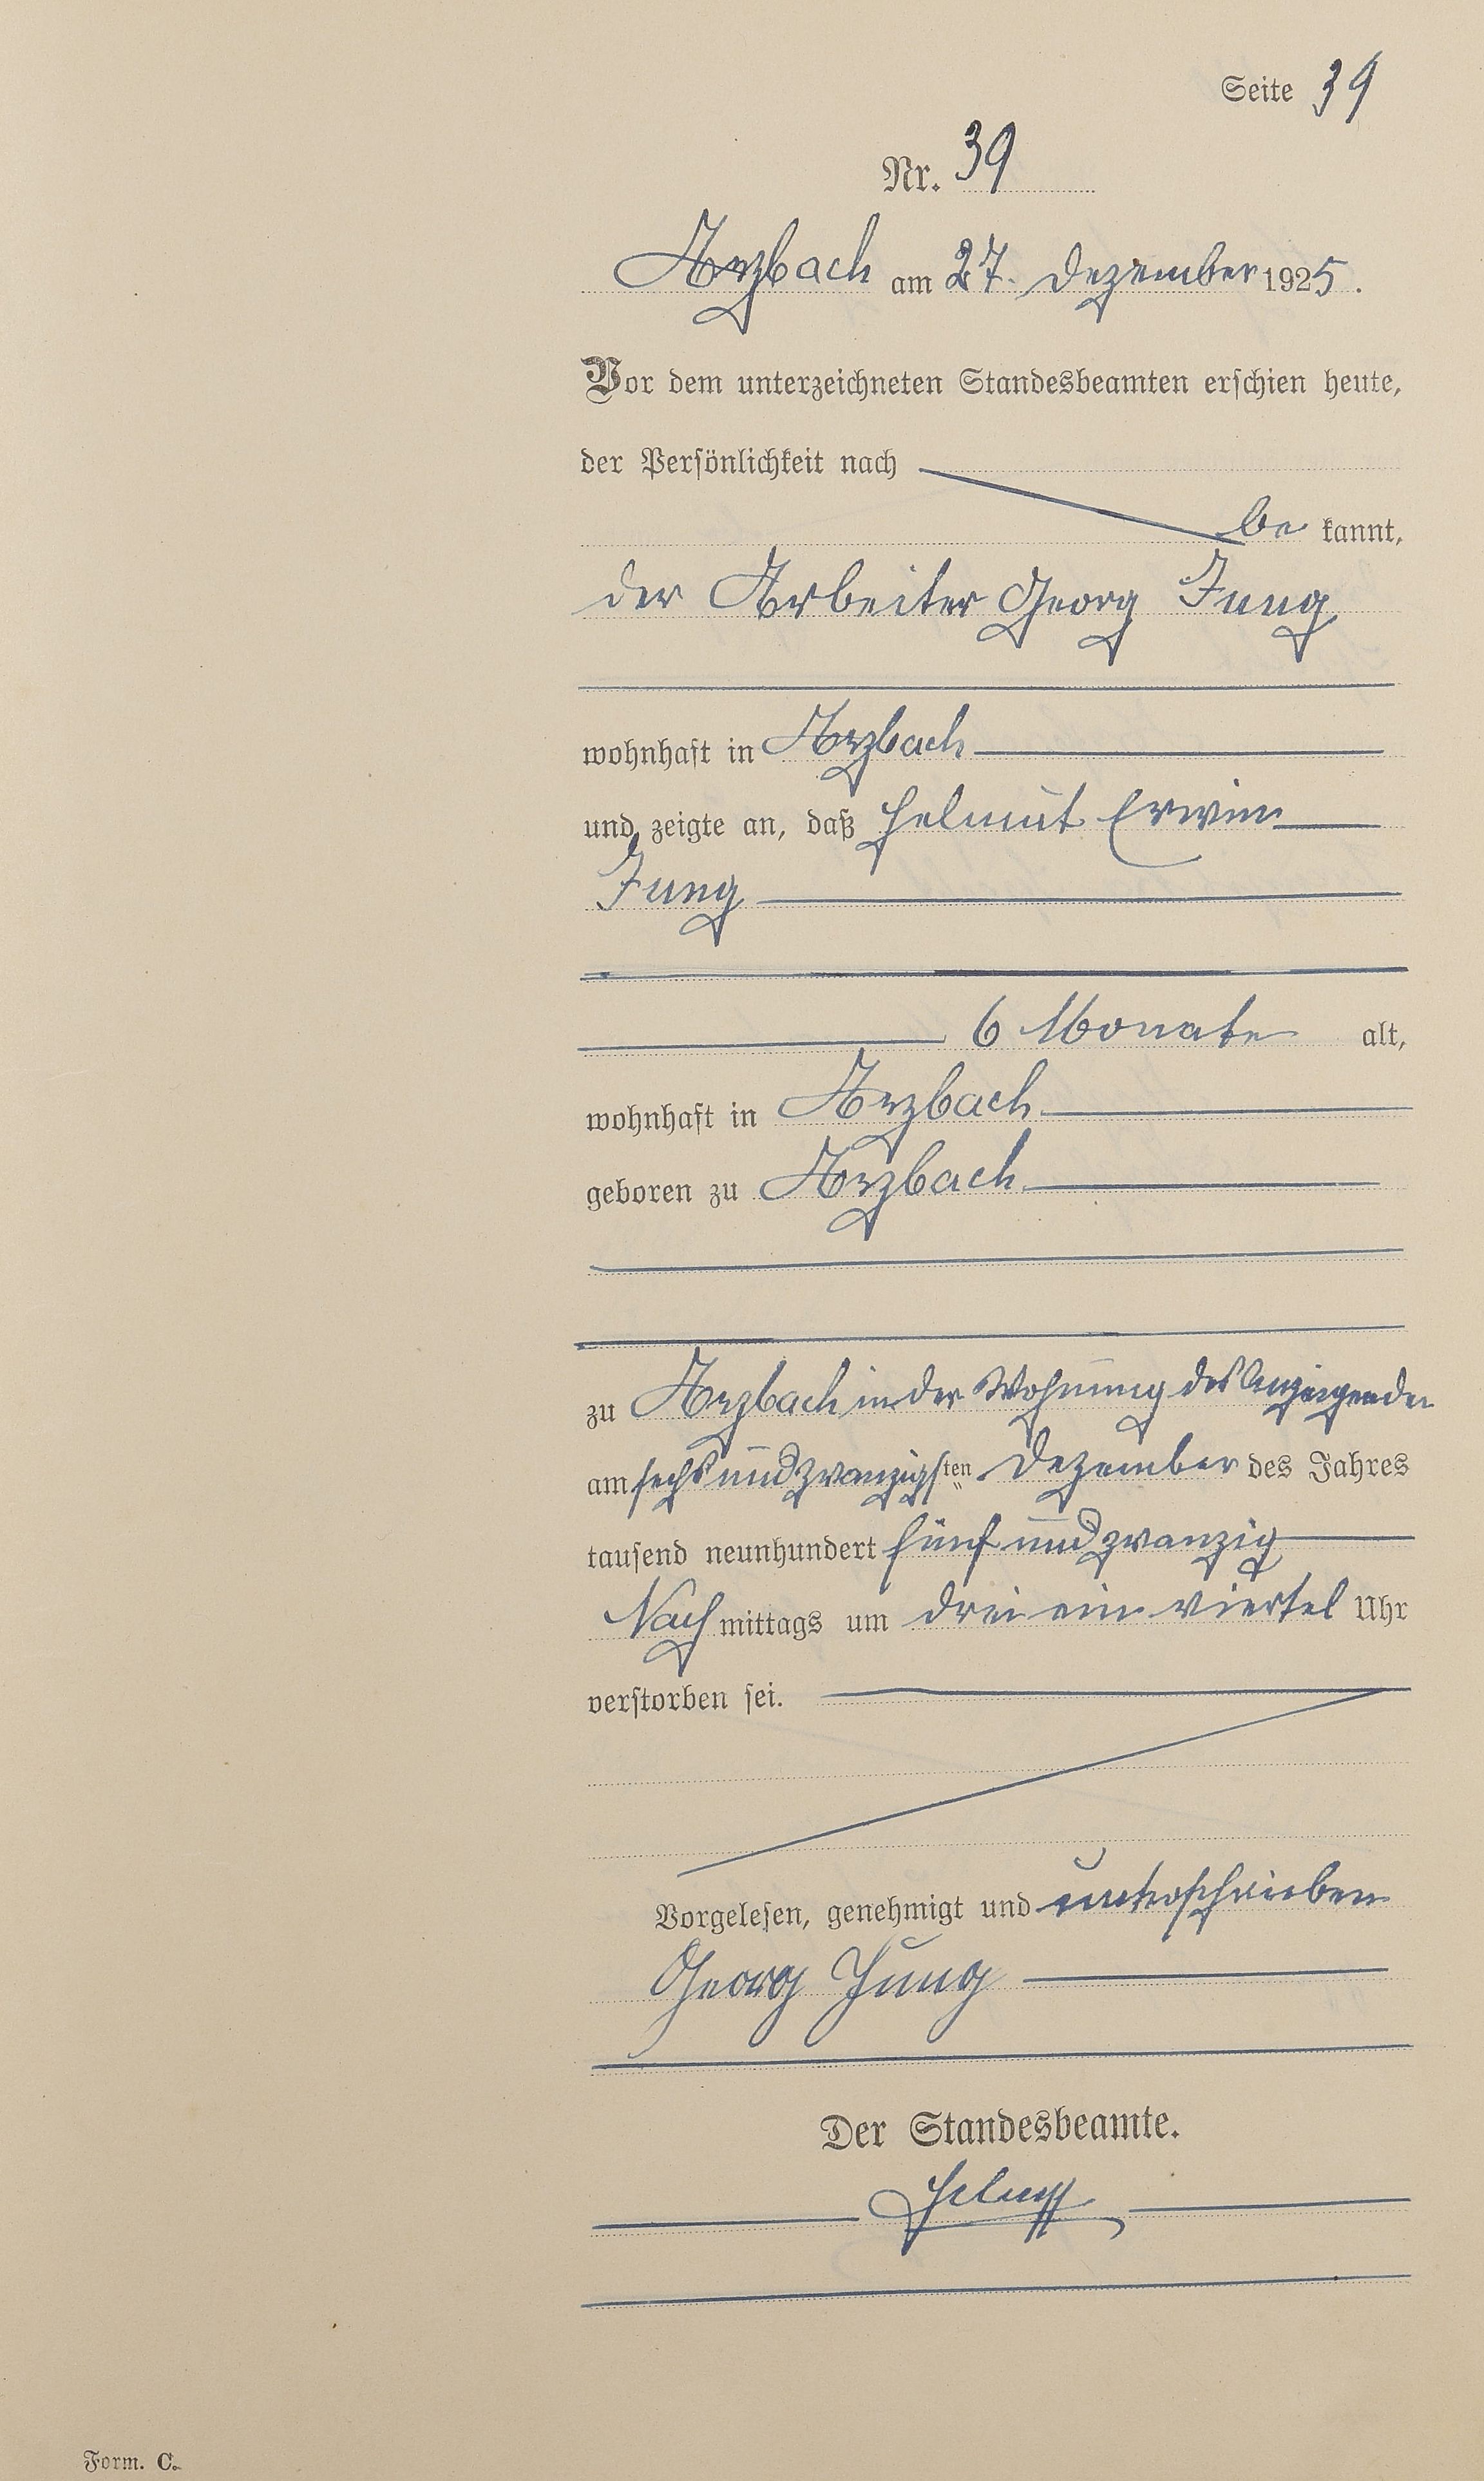 Seite 39
Nr. 39
Arzbach am 27. Dezember 1925.
Vor dem unterzeichneten Standesbeamten erschien heute,
der Persönlichkeit nach
be kannt,
der Arbeiter Georg Jung
wohnhaft in Arzbach
und zeigte an, daß Helmut Erwin
Jung
6 Monate alt,
wohnhaft in Arzbach
geboren zu Arzbach
zu Arzbach in der Wohnung des Anzeigenden
am sechs und zwanzigsten Dezember des Jahres
tausend neunhundert fünf und zwanzig
Nachmittags um drei ein viertel Uhr
verstorben sei.
Vorgelesen, genehmigt und unterschrieben
Georg Jung
Der Standesbeamte.
Form. C.